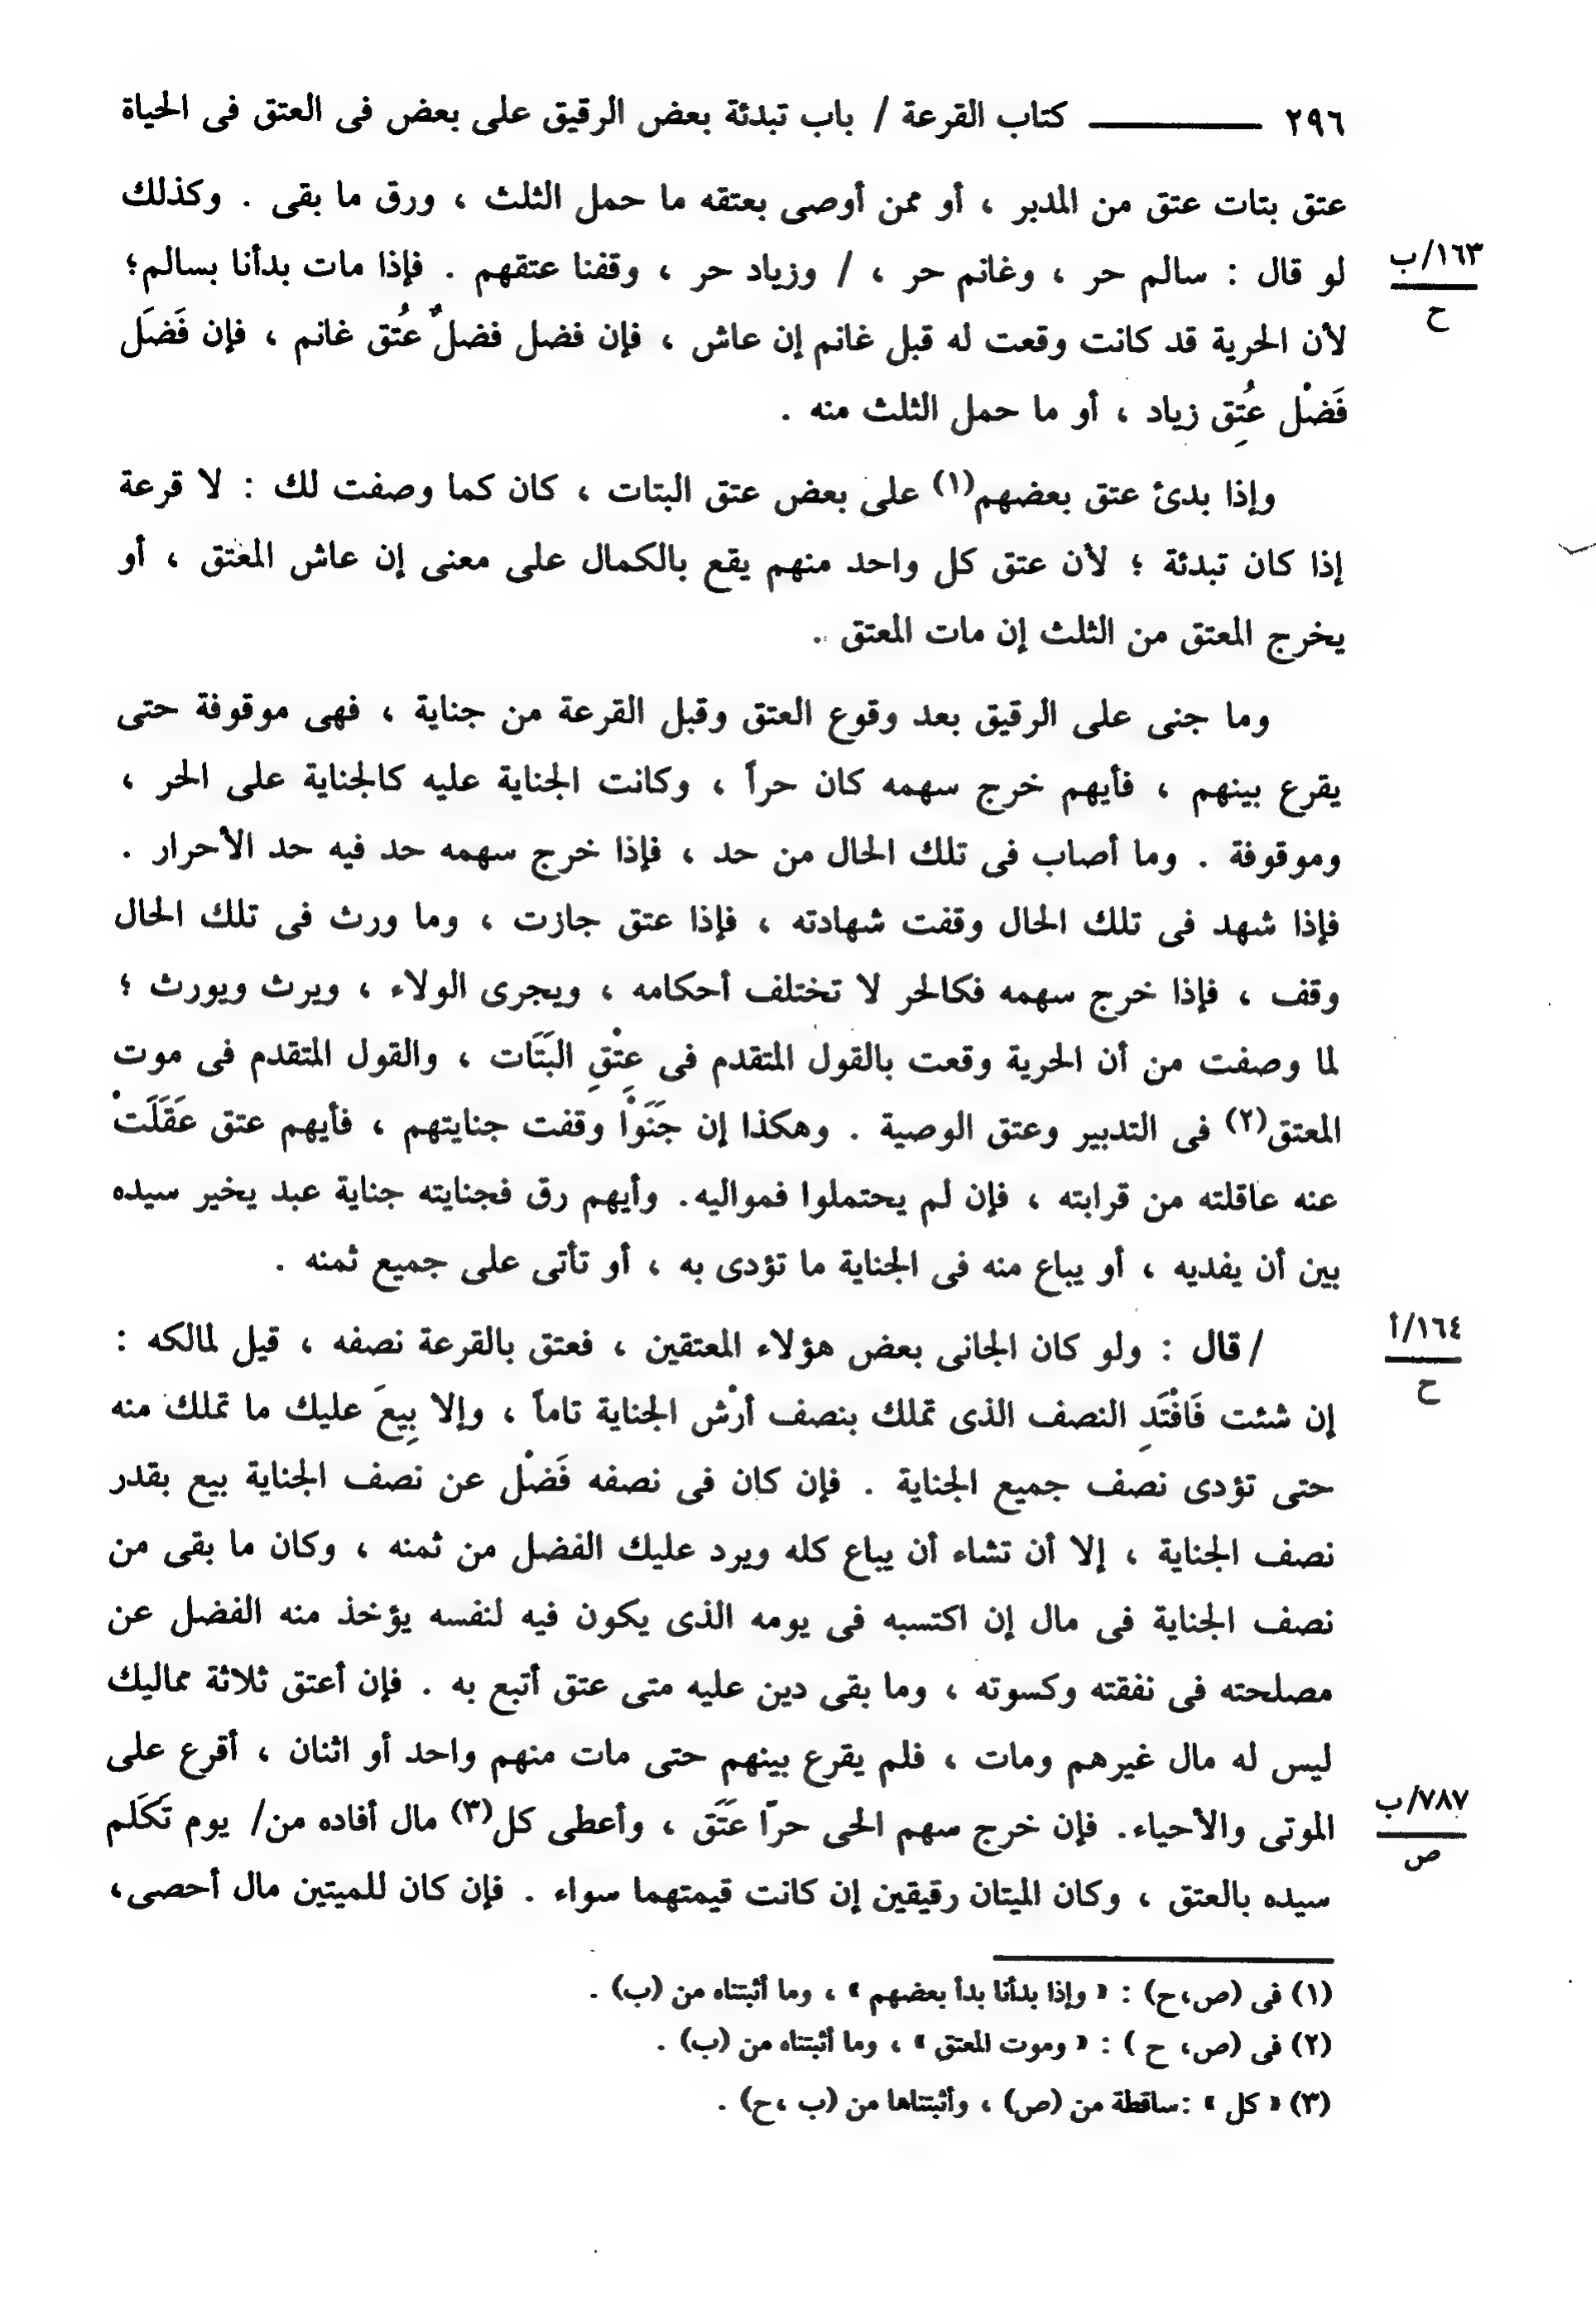 ٢٩٦ ــــــــــ كتاب القرعة / باب تبدئة بعض الرقيق على بعض فى العتق فى الحياة
عتق بتات عتق من المدبر ، أو ممن أوصى بعتقه ما حمل الثلث ، ورق ما بقى . وكذلك
١٦٣/ب
ح
لو قال : سالم حر ، وغانم حر ، / وزياد حر ، وقفنا عتقهم . فإذا مات بدأنا بسالم؛
لأن الحرية قد كانت وقعت له قبل غانم إن عاش ، فإن فضل فضلٌ عُتق غانم ، فإن فَضَل
فَضْل عُتِق زياد ، أو ما حمل الثلث منه .
وإذا بدئ عتق بعضهم(١) على بعض عتق البتات ، كان كما وصفت لك : لا قرعة
إذا كان تبدئة ؛ لأن عتق كل واحد منهم يقع بالكمال على معنى إن عاش المعتق ، أو
يخرج المعتق من الثلث إن مات المعتق .
وما جنى على الرقيق بعد وقوع العتق وقبل القرعة من جناية ، فهى موقوفة حتى
يقرع بينهم ، فأيهم خرج سهمه كان حراً ، وكانت الجناية عليه كالجناية على الحر ،
وموقوفة . وما أصاب فى تلك الحال من حد ، فإذا خرج سهمه حد فيه حد الأحرار .
فإذا شهد فى تلك الحال وقفت شهادته ، فإذا عتق جازت ، وما ورث فى تلك الحال
وقف ، فإذا خرج سهمه فكالحر لا تختلف أحكامه ، ويجرى الولاء ، ويرث ويورث ؛
لما وصفت من أن الحرية وقعت بالقول المتقدم فى عِتْقِ البَتَات ، والقول المتقدم فى موت
المعتق(٢) فى التدبير وعتق الوصية . وهكذا إن جَنَوْا وقفت جنايتهم ، فأيهم عتق عَقَلَتْ
عنه عاقلته من قرابته ، فإن لم يحتملوا فمواليه. وأيهم رق فجنايته جناية عبد يخير سيده
بين أن يفديه ، أو يباع منه فى الجناية ما تؤدى به ، أو تأتى على جميع ثمنه .
١٦٤/أ
ح
/ قال : ولو كان الجانى بعض هؤلاء المعتقين ، فعتق بالقرعة نصفه ، قيل لمالكه :
إن شئت فَافْتَدِ النصف الذى تملك بنصف أرْش الجناية تاماً ، وإلا بِيعَ عليك ما تملك منه
حتى تؤدى نصف جميع الجناية . فإن كان فى نصفه فَضْل عن نصف الجناية بيع بقدر
نصف الجناية ، إلا أن تشاء أن يباع كله ويرد عليك الفضل من ثمنه ، وكان ما بقى من
نصف الجناية فى مال إن اكتسبه فى يومه الذى يكون فيه لنفسه يؤخذ منه الفضل عن
مصلحته فى نفقته وكسوته ، وما بقى دين عليه متى عتق أتبع به . فإن أعتق ثلاثة مماليك
ليس له مال غيرهم ومات ، فلم يقرع بينهم حتى مات منهم واحد أو اثنان ، أقرع على
٧٨٧/ب
ص
الموتى والأحياء. فإن خرج سهم الحى حرّا عَتَق ، وأعطى كل(٣) مال أفاده من/ يوم تَكَلم
سيده بالعتق ، وكان الميتان رقيقين إن كانت قيمتهما سواء . فإن كان للميتين مال أحصى،
(١) فى (ص،ح) : « وإذا بدأنا بدأ بعضهم » ، وما أثبتناه من (ب) .
(٢) فى (ص، ح ) : « وموت المعتق » ، وما أثبتناه من (ب) .
(٣) « كل » :ساقطة من (ص) ، وأثبتناها من (ب ،ح) .